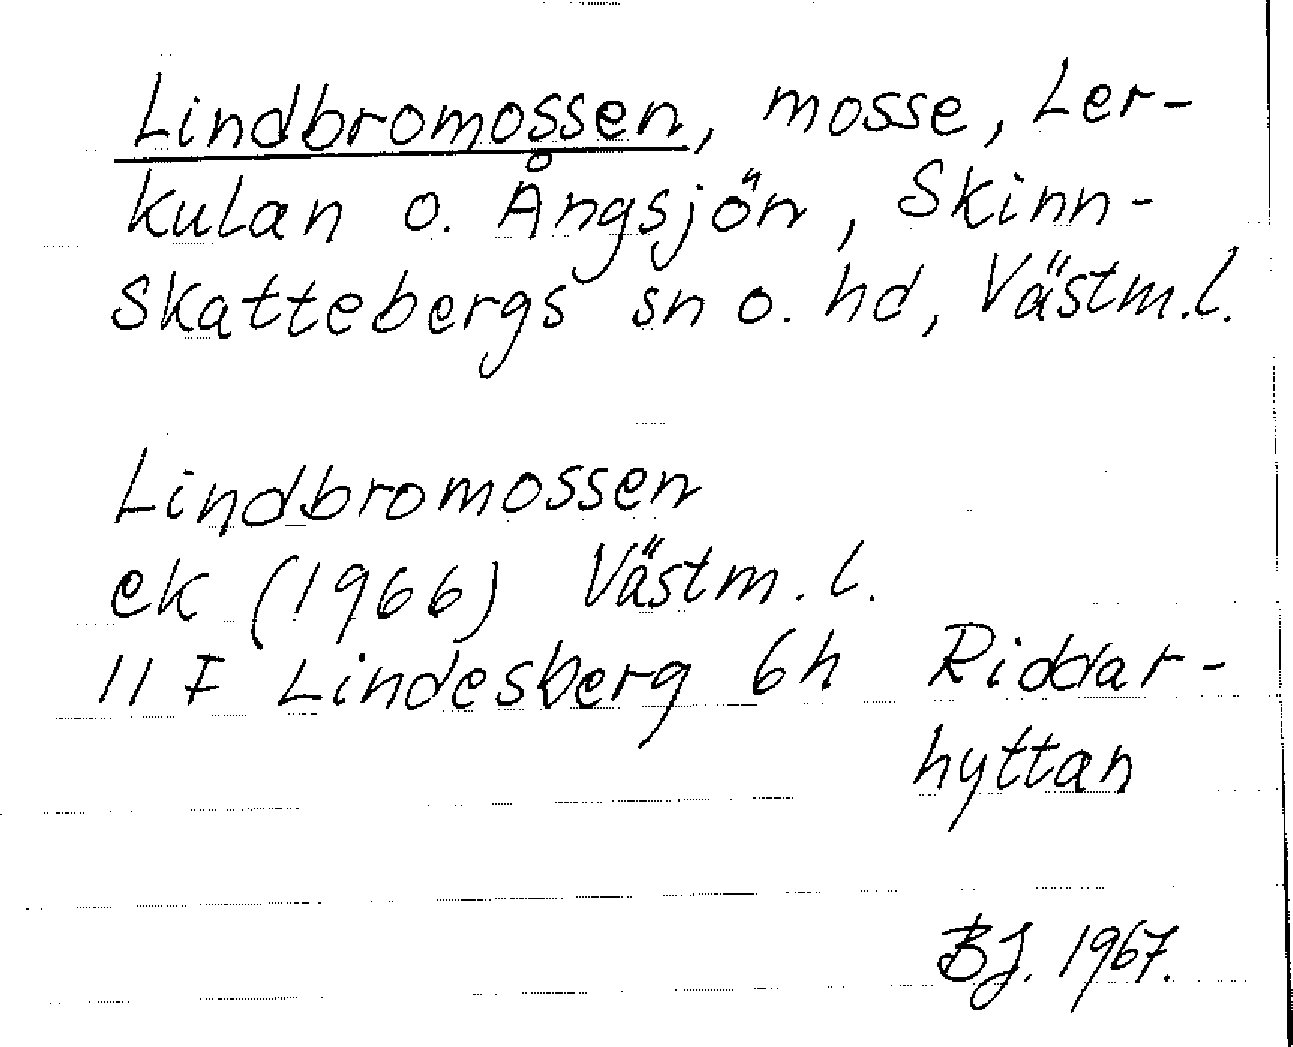 Lindbromossen, mosse, Ler-
kulan o. Ångsjön, Skinn-
skattebergs sn o. hd, Västm.l.
Lindbromossen
ek (1966) Västm.l.
11 F Lindesberg 6h Riddar-
hyttan
BJ. 1967.